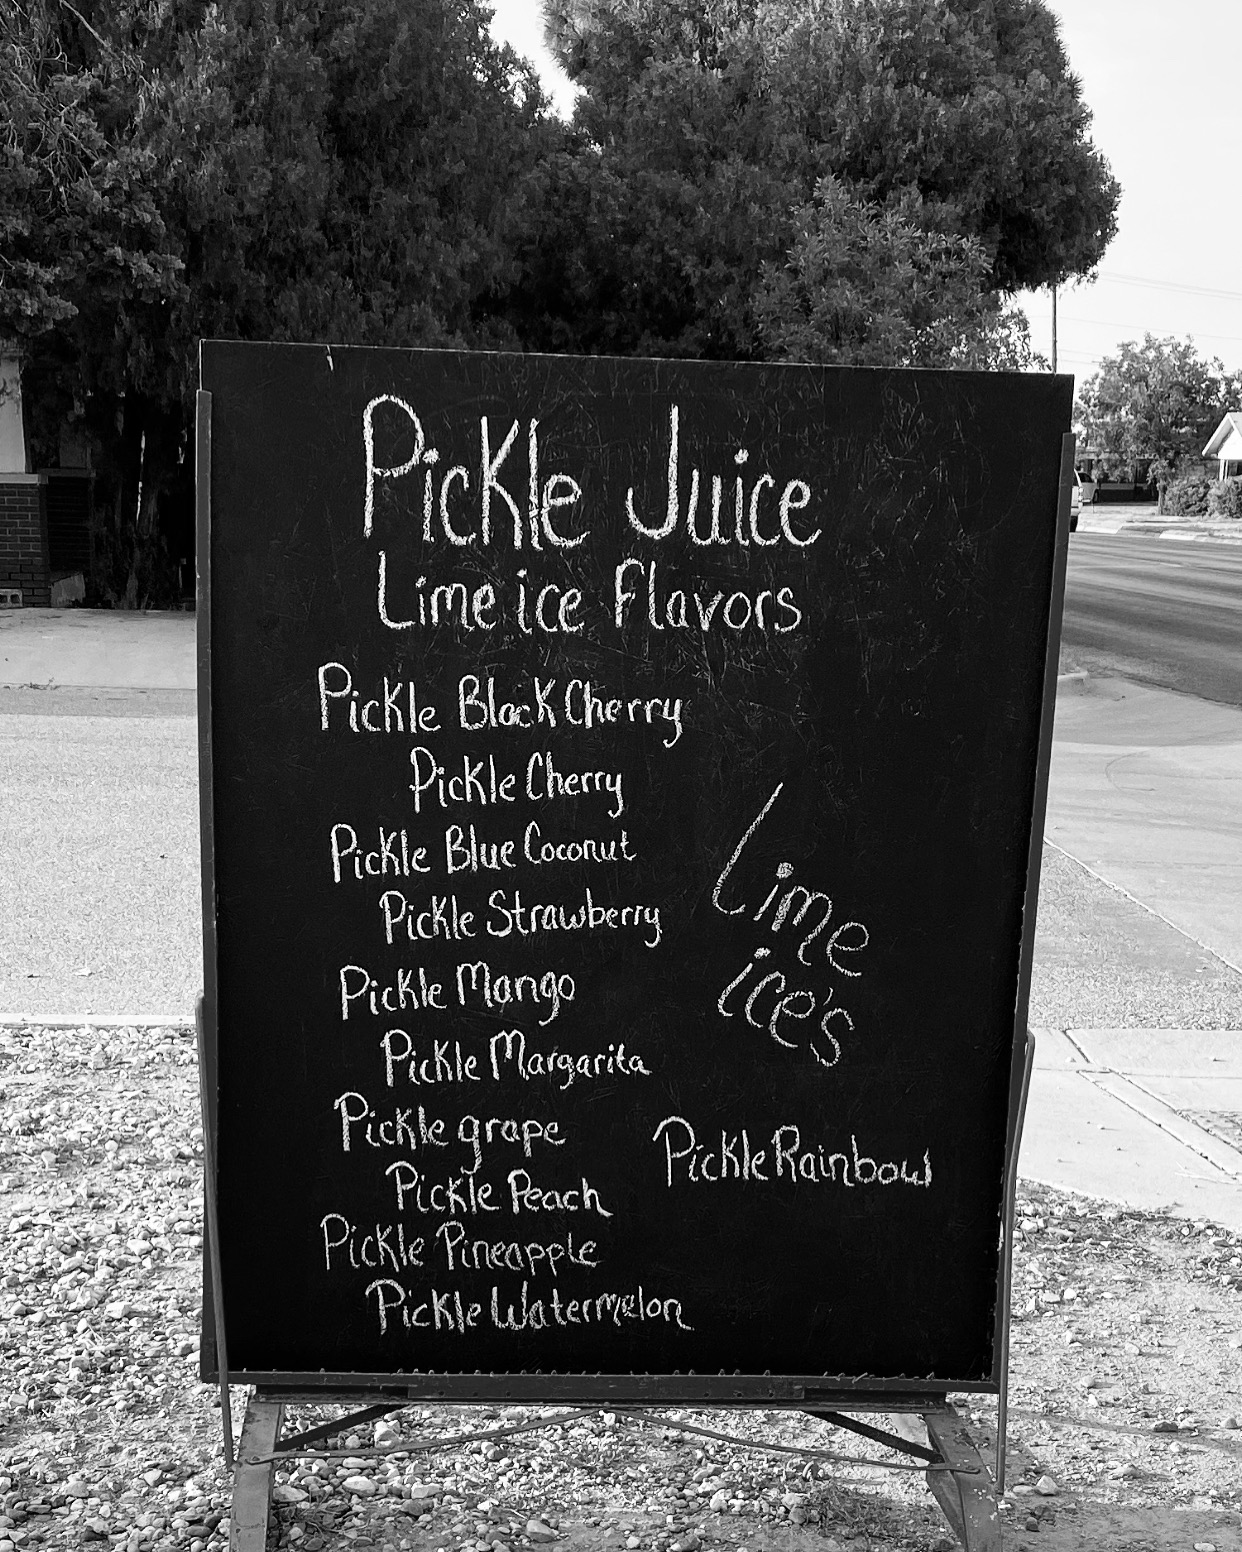 Pickle Juice
Lime ice flavors
Pickle Black Cherry
Pickle Cherry
Pickle Blue Coconut
Pickle Strawberry
Pickle Mango
Pickle Margarita
Pickle grape
Pickle Peach
Pickle Pineapple
Pickle Watermelon
Lime
ice's
Pickle Rainbow